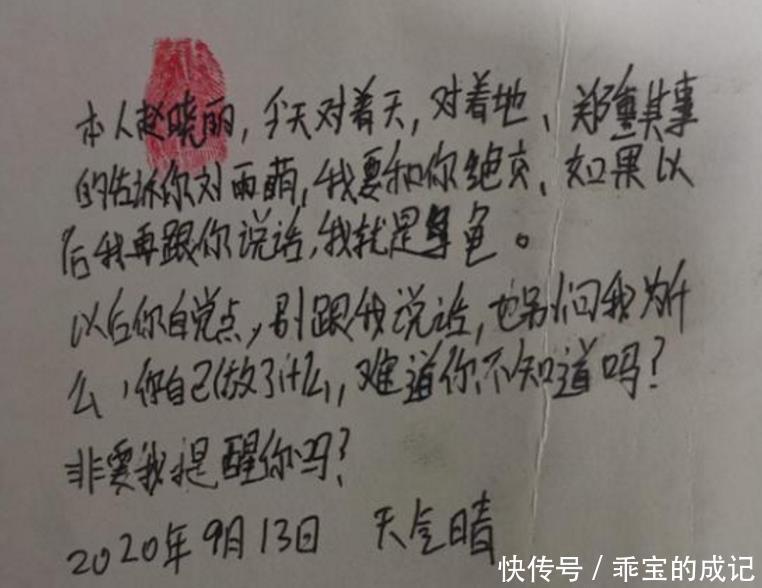 本人赵晓丽，今天对着天，对着地、郑重其事
的告诉你刘雨萌，我要和你绝交、如果以
后我再跟你说话，我就是龟。
以后你自觉点，别跟我说话，也别问我为什
么，你自己做了什么，难道你不知道吗？
非要我提醒你吗？
2020年9月13日 天气晴
快传号 / 乖宝的成记